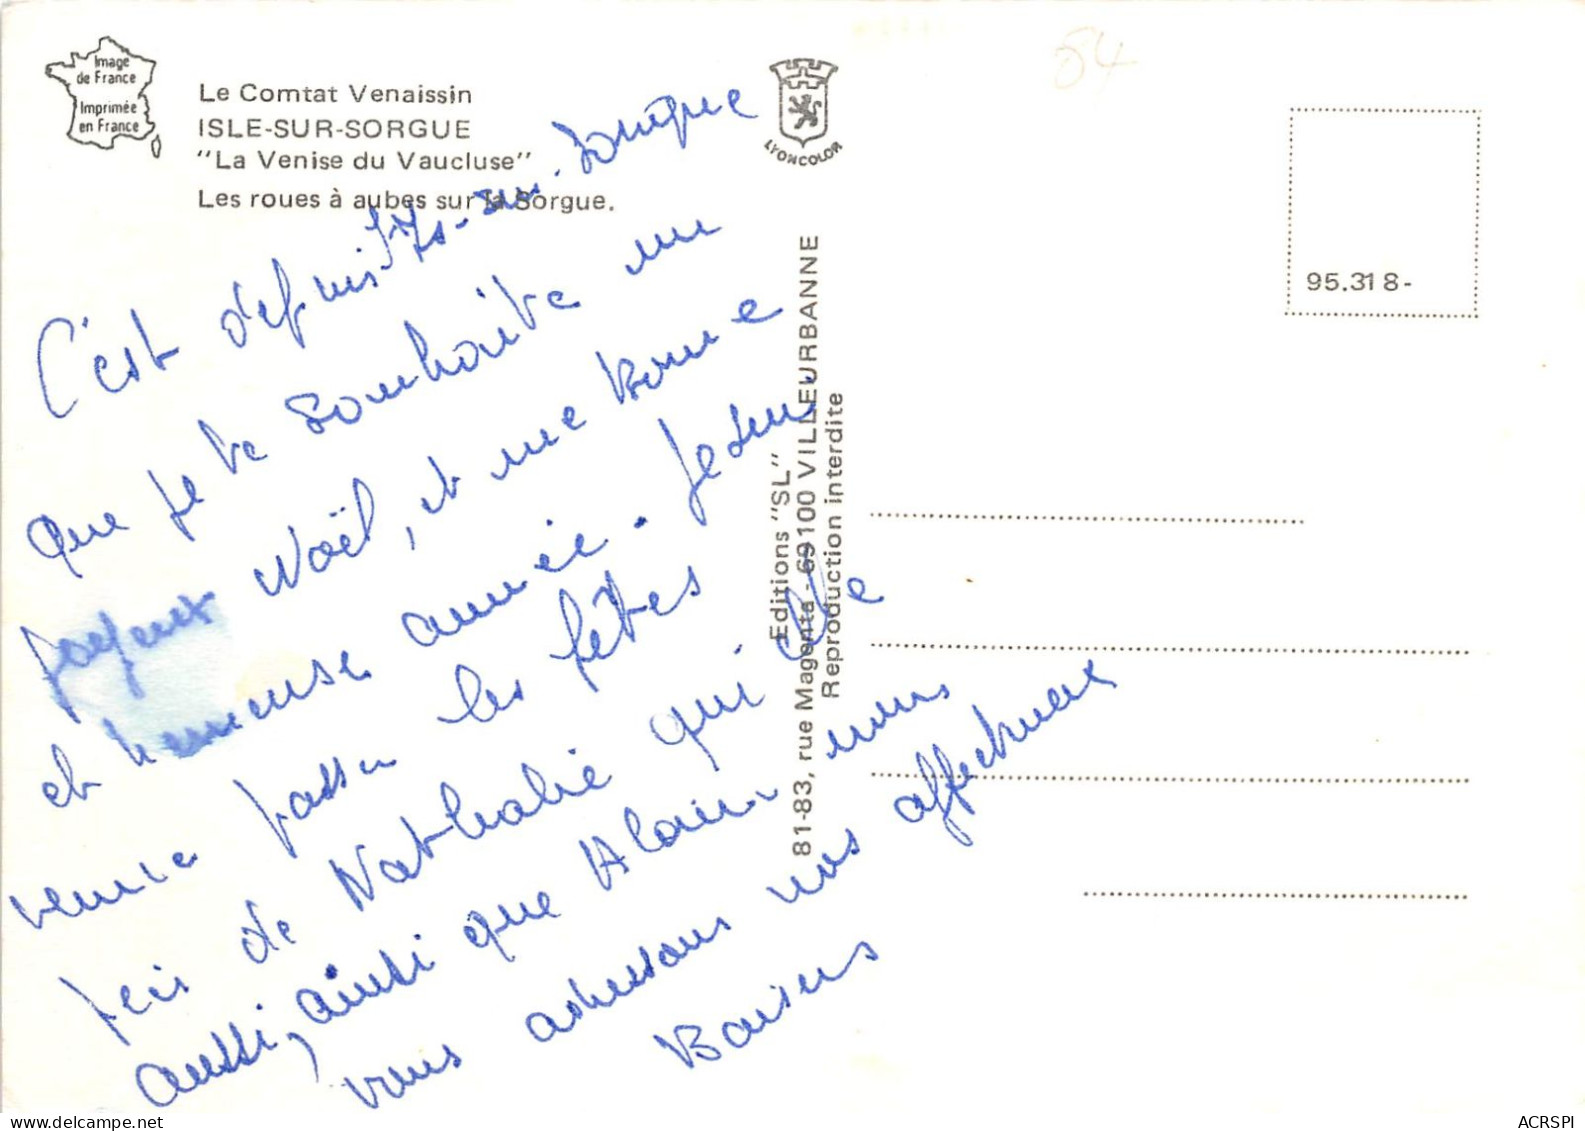 Image
de France
Imprimée
en France
Le Comtat Venaissin
ISLE-SUR-SORGUE
"La Venise du Vaucluse"
Les roues à aubes sur la Sorgue.
LYONCOLOR
84
95.318-
Editions "SL"
81-83, rue Magenta - 69100 VILLEURBANNE
Reproduction interdite
C'est depuis -sur-Sorgue
que je te souhaite un
joyeux Noël, et une bonne
et heureuse année. Je suis
venue passer les fêtes
près de Nathalie qui elle
aussi, ainsi que Alain nous
vous adressons nos affectueux
Baisers
ACRSPI